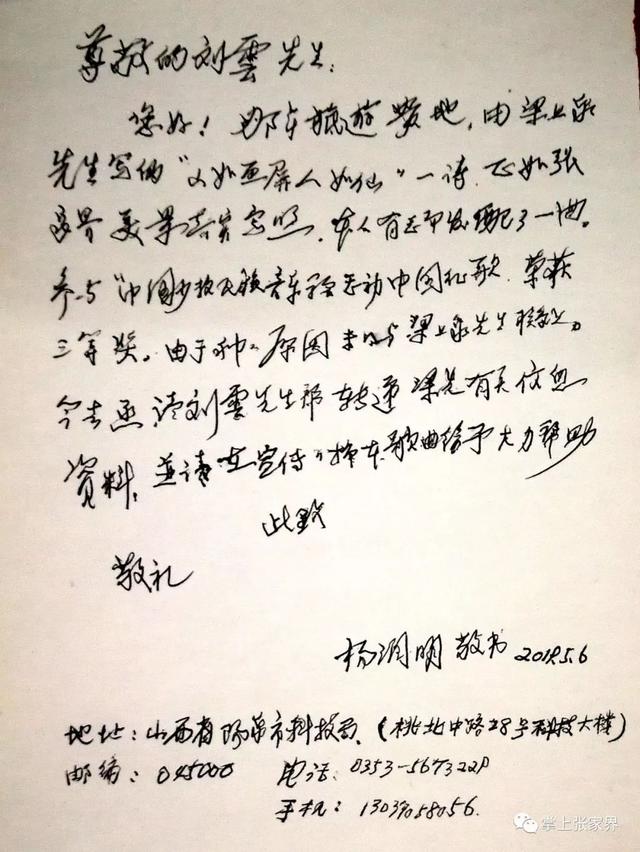 尊敬的刘雲先生:
您好! 那年旅游贵地,由梁上泉
先生写的“山如画屏人如仙”一诗,正如张
家界美景真实写照,本人有感即发配了一曲。
参与“中国少数民族音乐 动中国征歌,荣获
三等奖。由于种々原因未能与梁上泉先生联系上。
今去函请刘雲先生帮转递梁先 有关信息
资料,並请在宣传 推本歌曲给予大力帮助
此致
敬礼
杨润明敬书 2019.5.6
地址:山西省阳泉市科技局,(桃北中路28号科技大楼)
邮编:045000 电话:0353-567322
手机:1303 058056.
掌上张家界